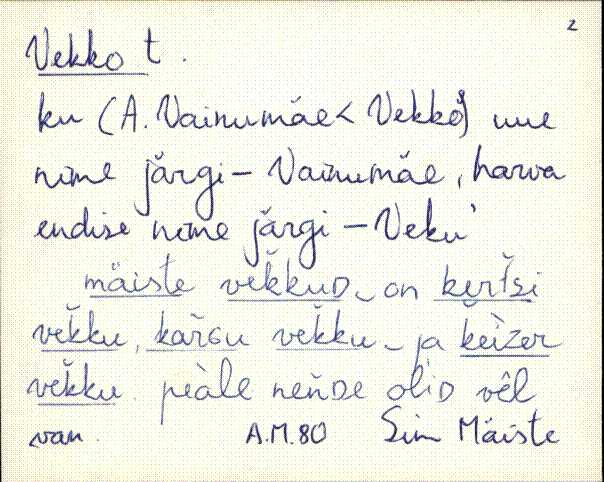 2
Vekko t.
ku (A. Vainumäe < Vekko) uue
nime järgi – Vainumäe, harva
endise nime järgi – Veku'
mäiste vekkuD on kertsi
vekku, karGu vekku ja keizer
vekku. peale neńDe oliD vêl
van. A.M.80 Sim Mäiste